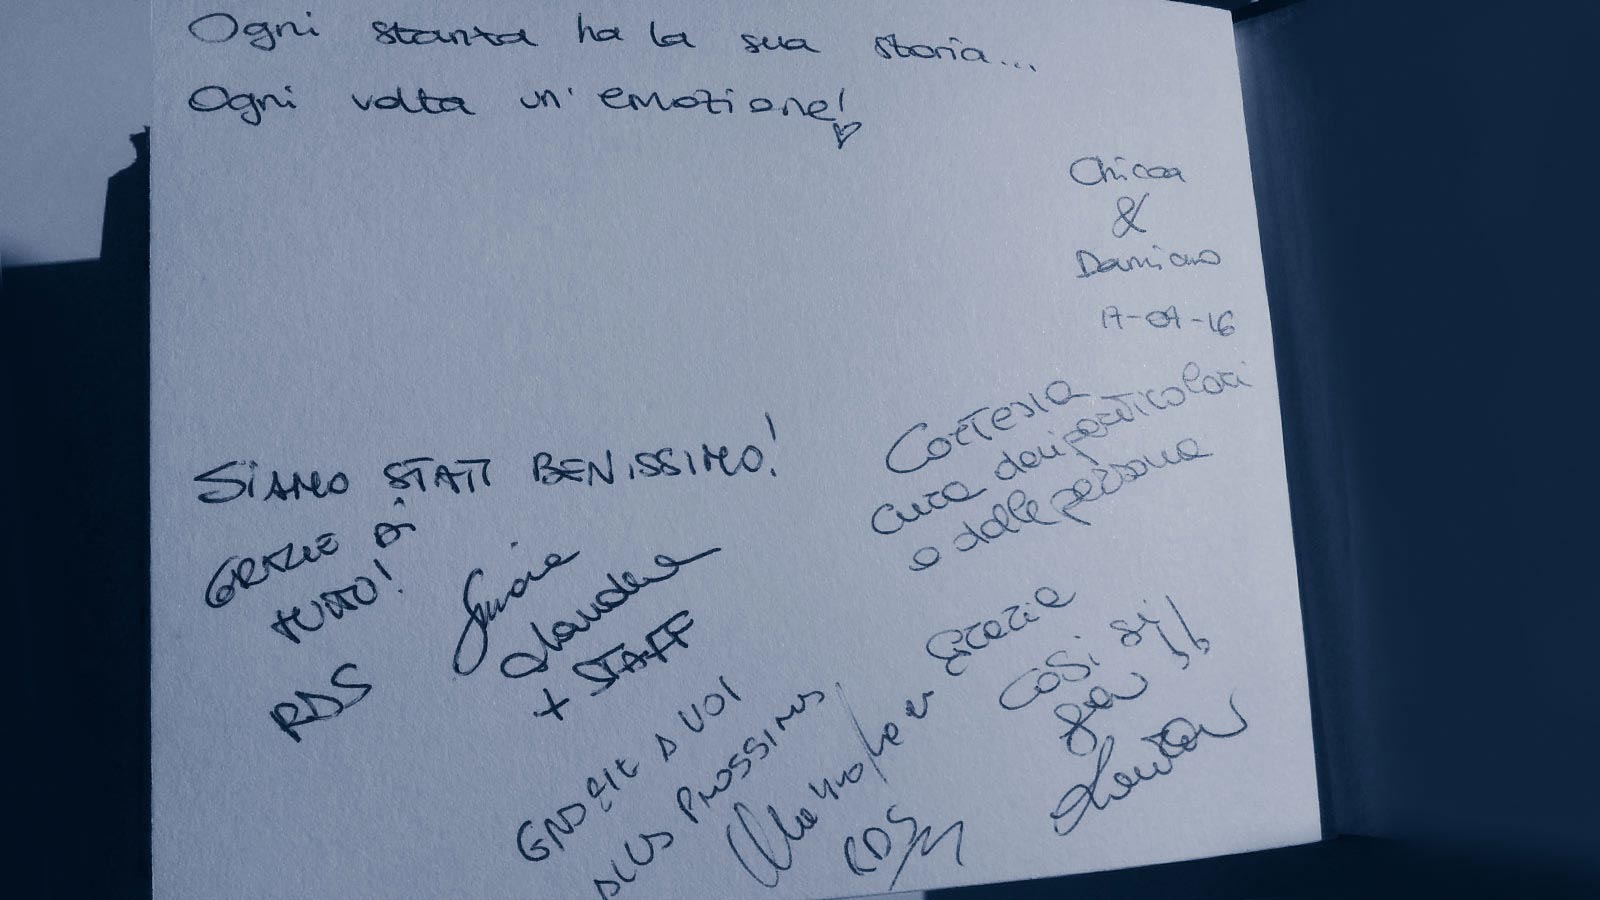 Ogni stanza ha la sua storia...
Ogni volta un' emozione!
Chicca
&
Damiano
Cortesia
cura dei particolari
e delle persone
Grazie
Così si
fa!!
SiAMO STATI BENISSIMO!
GRAZIE DI
TUTTO!
RDS
+ STAFF
GRAZIE A VOI
ALLA PROSSIMA
RDS